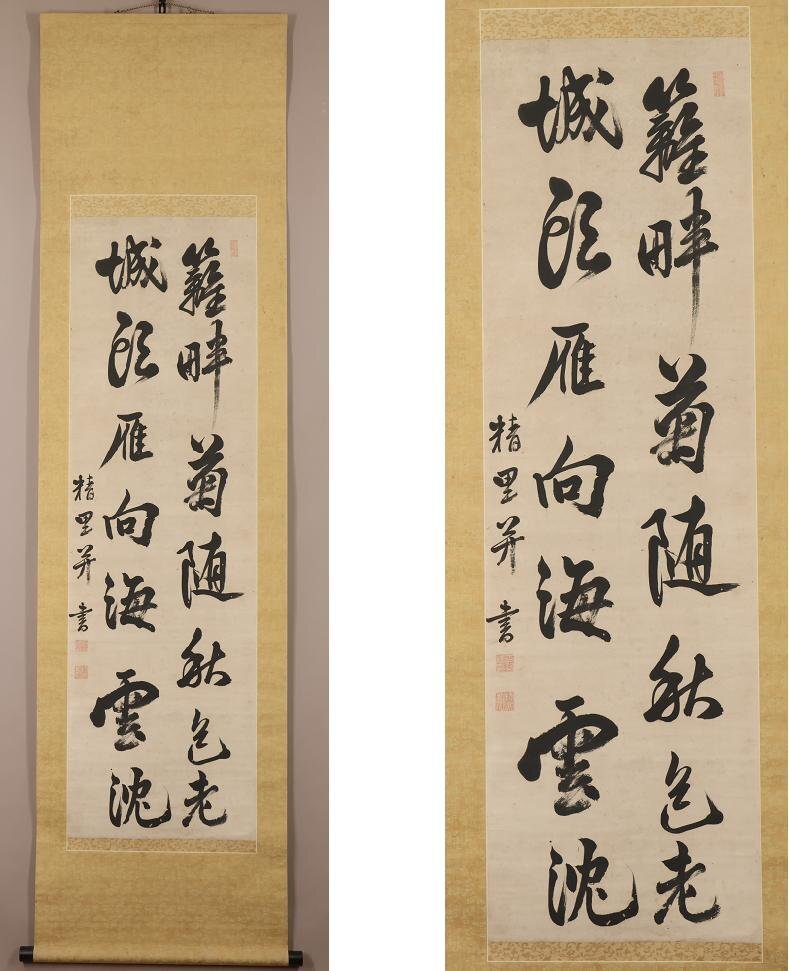 籬畔菊随秋色老
城頭雁向海雲沈
精里并書